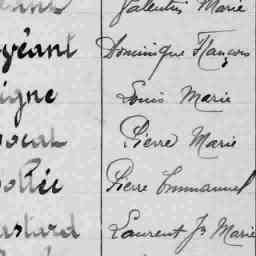 Valentin Marie
géant Dominique François
igne Louis Marie
ocat Pierre Marie
ollée Pierre Emmanuel
astard Laurent Jh Marie